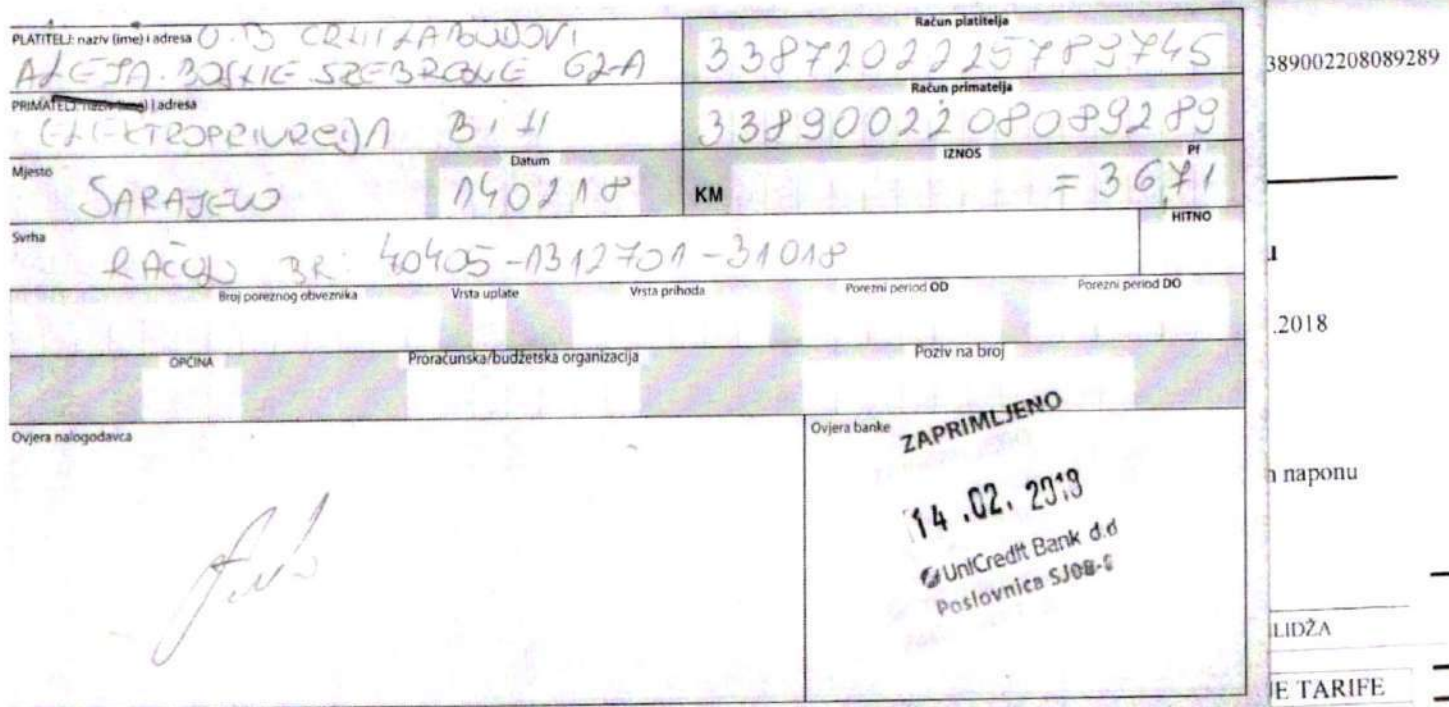 PLATITELJ: naziv (ime) i adresa U.B CRLIT ZABUDOVI
ALEJA. BOSNE SREBRENE 62-A
Račun platitelja
3387202225789745
PRIMATELJ: naziv (ime) i adresa
ELEKTROPRIVREDA BIH
Račun primatelja
3389002208089289
Mjesto
SARAJEVO
Datum
140218
IZNOS
Pf
KM
=36,71
HITNO
Svrha
RAČUN BR: 40405-1312701-31018
Broj poreznog obveznika
Vrsta uplate
Vrsta prihoda
Porezni period OD
Porezni period DO
OPĆINA
Proračunska/budžetska organizacija
Poziv na broj
Ovjera nalogodavca
Ovjera banke
ZAPRIMLJENO
14.02.2018
UniCredit Bank d.d
Poslovnica
389002208089289
.2018
naponu
LIDŽA
JE TARIFE